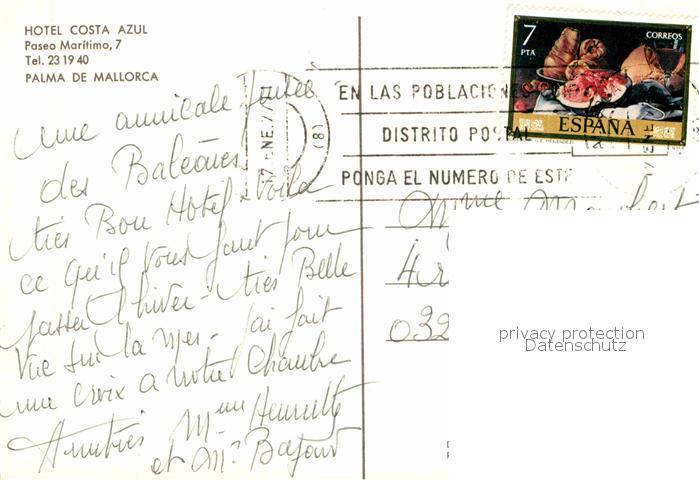 HOTEL COSTA AZUL
Paseo Marítimo, 7
Tel. 23 19 40
PALMA DE MALLORCA
Une amicale pensée
des Baléares
très Bon Hotel - Voila
ce qu'il vous faut pour
passer l'hiver - très Belle
vue sur la mer - j'ai fait
une croix a notre chambre
Amitiés Mme
et Mr
7
PTA
CORREOS
ESPAÑA
EN LAS POBLACIONES CON
DISTRITO POSTAL
PONGA EL NUMERO DE ESTE
(8)
ENE
Mme
4 r
032
privacy protection
Datenschutz